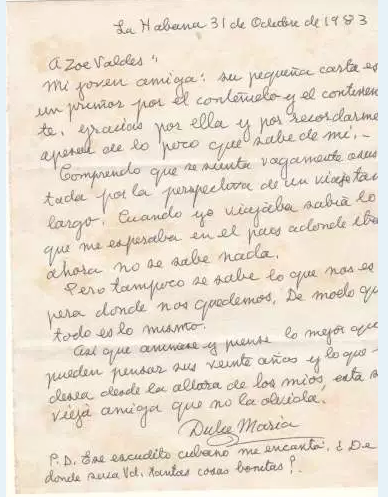 La Habana 31 de Octubre de 1983
A Zoe Valdes:
Mi joven amiga: su pequeña carta es
un primor por el conteñuelo y el continen
te. Gracias por ella y por recordarme
apesar de lo poco que sabe de mi.-
Comprendo que se sienta vagamente asus
tada por la perspectiva de un viaje tan
largo. Cuando yo viajaba sabía lo
que me esperaba en el pais adonde iba
ahora no se sabe nada.
Pero tampoco se sabe lo que nos es
pera donde nos quedemos. De modo qu
todo es lo mismo.
Así que animese y piense lo mejor que
pueden pensar sus veinte años y lo que
desea desde la altura de los mios, esta s
vieja amiga que no la olvida.
Dulce María
P.D. Ese escudito cubano me encantá. ¿De
donde saca Vd. tantas cosas bonitas?.